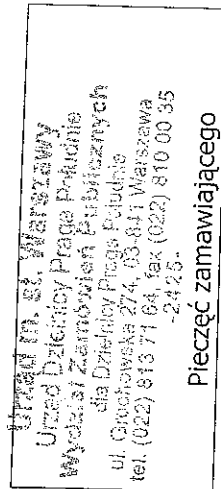 Urząd m. st. Warszawy
Urząd Dzielnicy Praga Południe
Wydział Zamówień Publicznych
dla Dzielnicy Praga Południe
ul. Grochowska 274, 03-841 Warszawa
tel. (022) 813 71 64, fax (022) 810 00 35
-2425-
Pieczęć zamawiającego